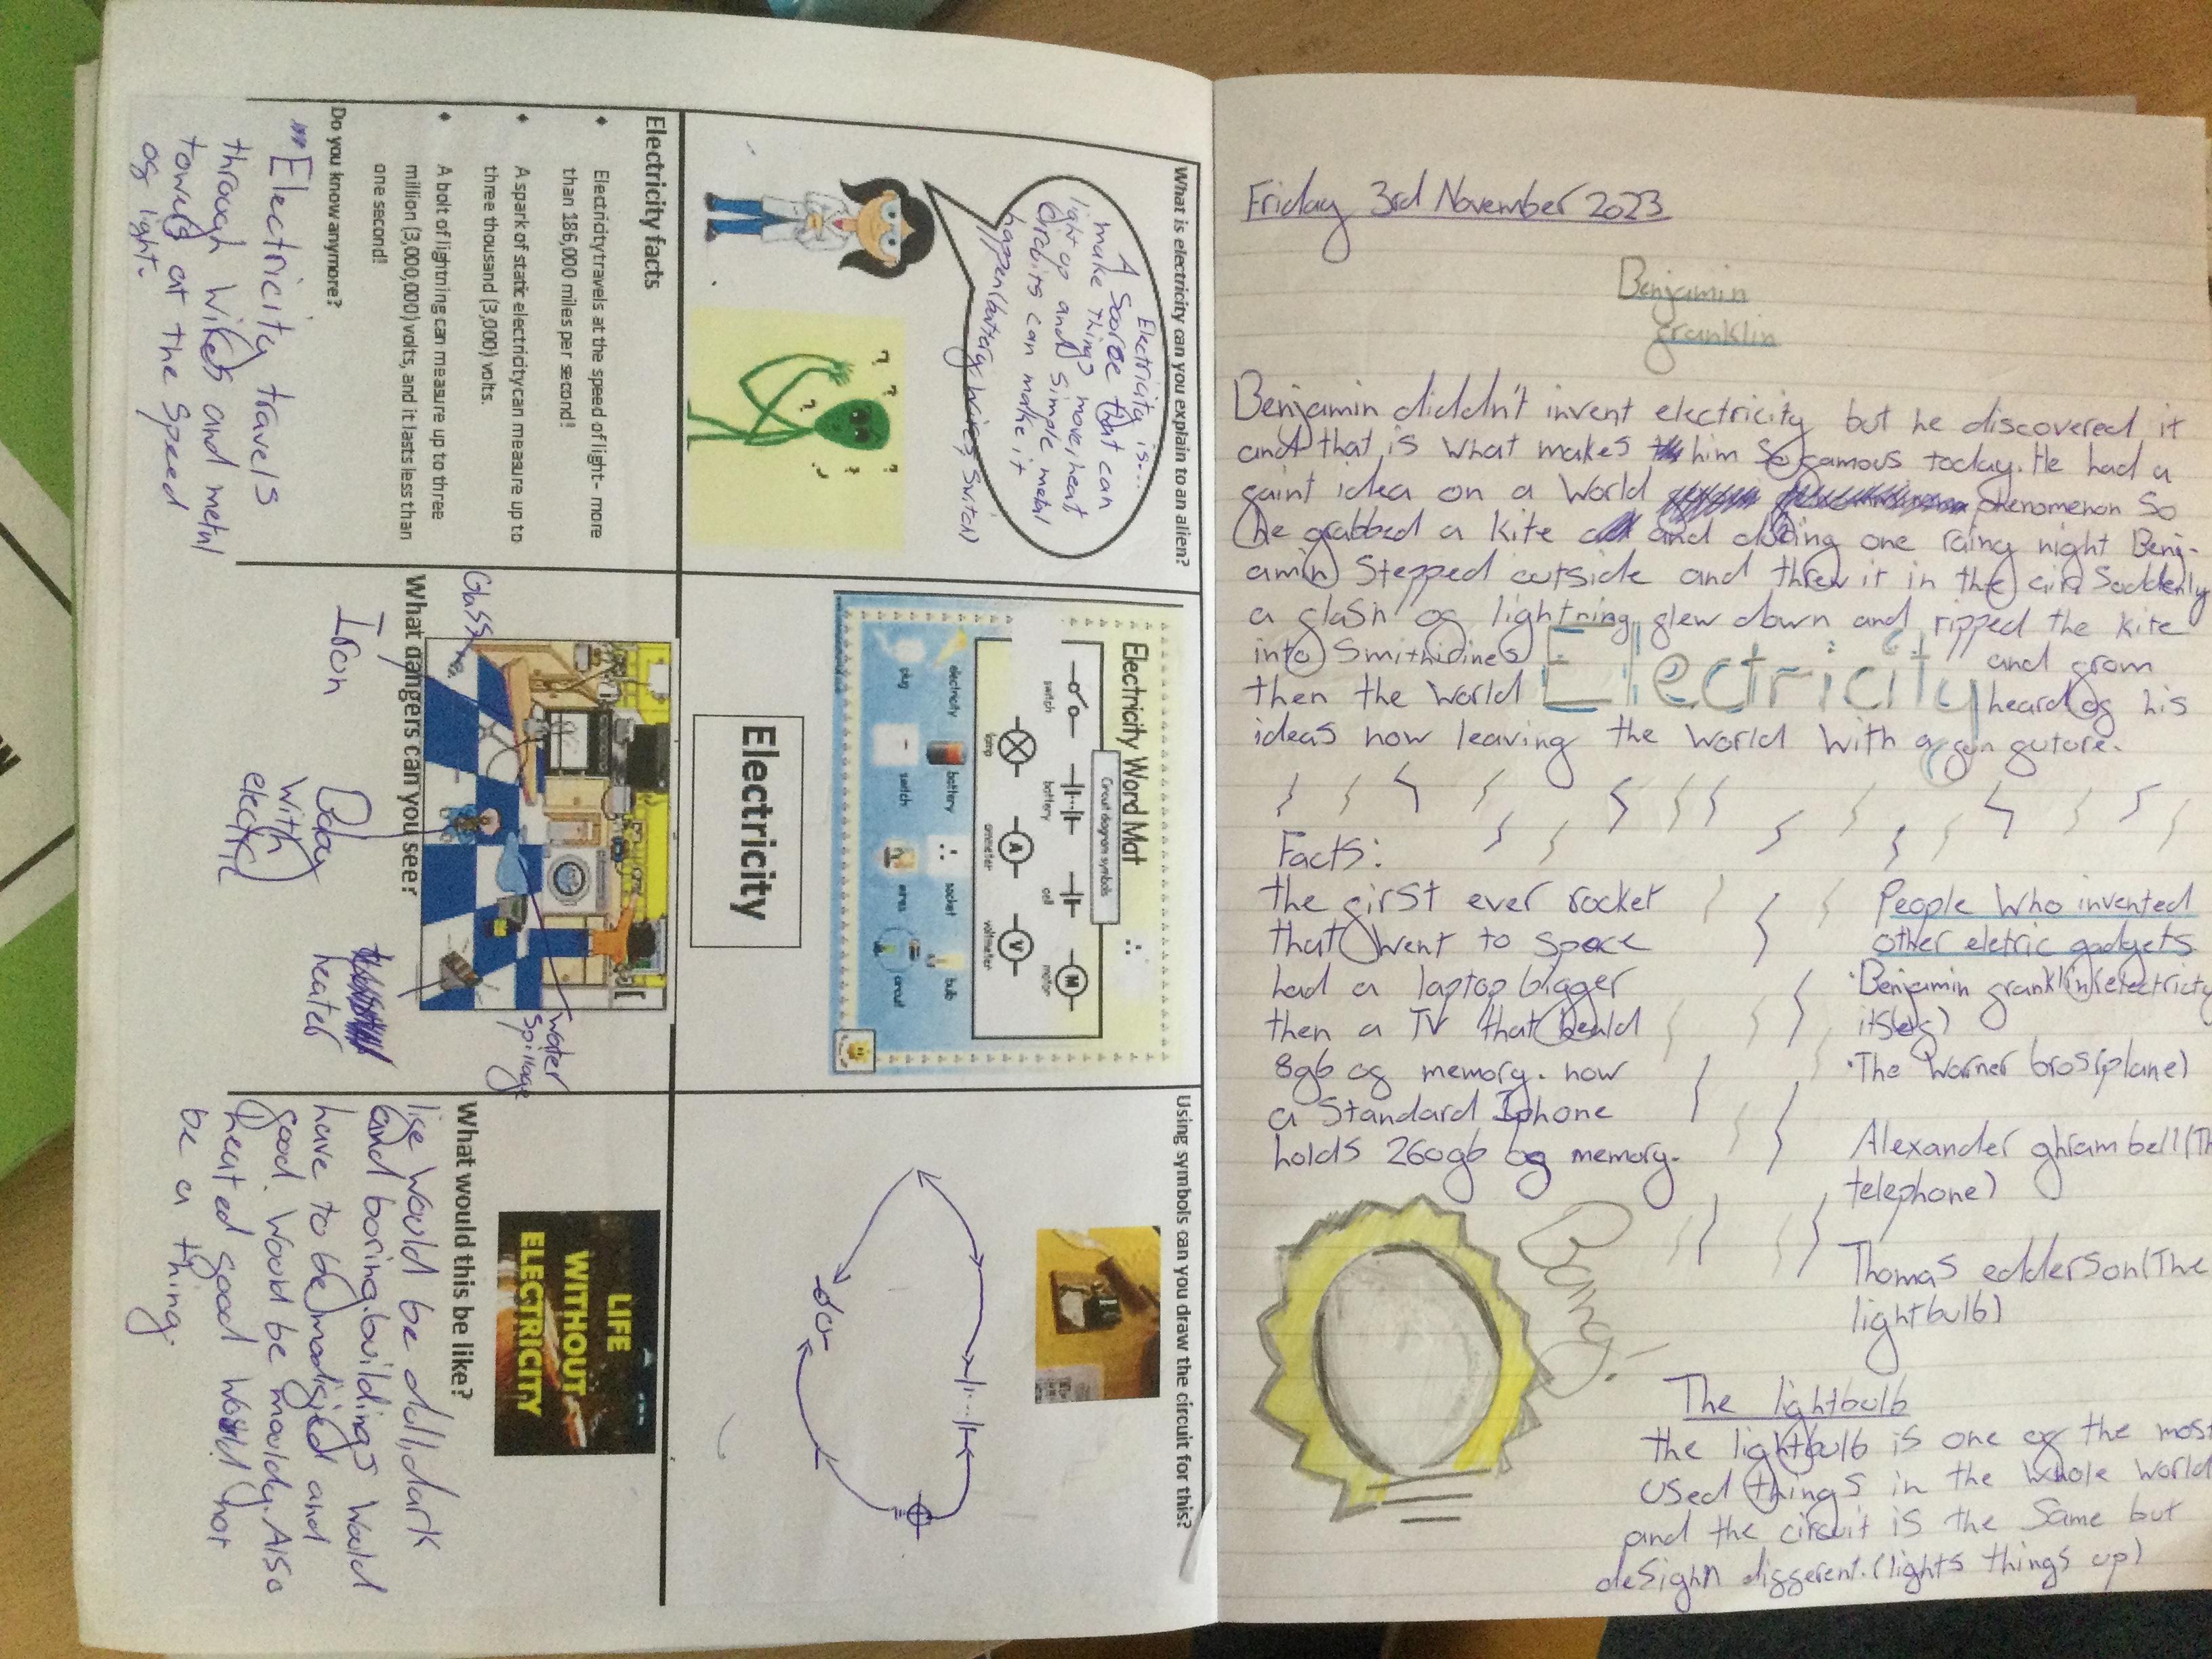 What is electricity can you explain to an alien?
Electricity is...
A Soorce that can
make things move, heat
light up and simple metal
circuits can make it
happen(battery, wires, switch)
Electricity facts
Electricity travels at the speed of light - more
than 186,000 miles per second!
A spark of static electricity can measure up to
three thousand (3,000) volts.
A bolt of lightning can measure up to three
million (3,000,000) volts, and it lasts less than
one second!
Do you know anymore?
Electricity travels
through wires and metal
towers at the speed
of light.
Electricity Word Mat
Circuit diagram symbols
switch
battery
cell
motor
lamp
ammeter
voltmeter
electricity
battery
socket
bulb
plug
switch
wires
circuit
Electricity
Glass
water
spillage
What dangers can you see?
Iron
Baby
with
electric
heater
Using symbols can you draw the circuit for this?
LIFE
WITHOUT
ELECTRICITY
What would this be like?
life would be dull, dark
and boring. buildings would
have to be modified and
food would be mouldy. Also
heated food would not
be a thing.
Friday 3rd November 2023
Benjamin
franklin
Benjamin diddn't invent electricity but he discovered it
and that is what makes him so famous today. He had a
faint idea on a world phenomenon So
he grabbed a kite and during one rainy night Benj-
amin Stepped outside and threw it in the air. Suddenly
a flash of lightning flew down and ripped the kite
into Smithidines and from
then the world Electricity heard of his
ideas now leaving the world with a fun future.
Facts:
the first ever rocket
that went to space
had a laptop bigger
then a TV that
8gb of memory. now
a Standard Iphone
holds 260gb of memory.
People Who invented
other eletric gadgets
·Benjamin franklin(electricty
itself)
·The Warner bros(plane)
Alexander ghram bell(Th
telephone)
Thomas edderson(The
lightbulb)
Bang!
The lightbulb
the lightbulb is one of the most
used things in the whole world
and the circuit is the same but
design different.(lights things up)